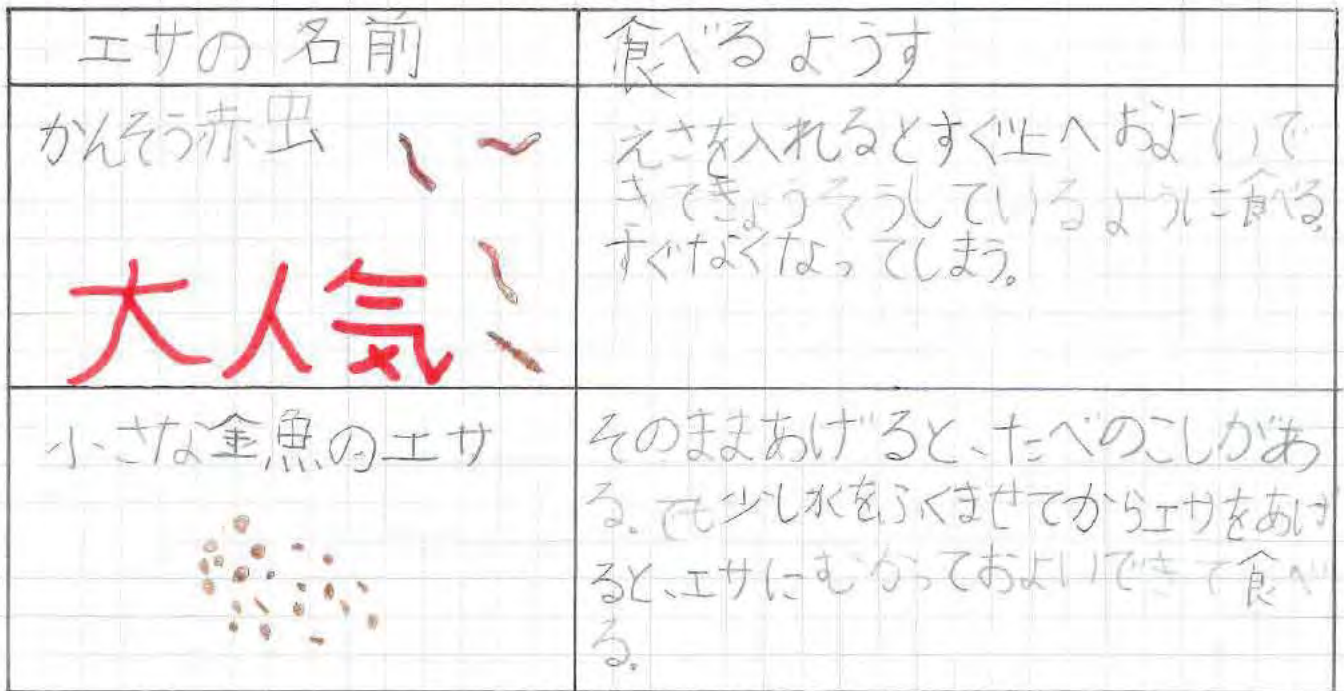 エサの名前
食べるようす
かんそう赤虫
大人気
えさを入れるとすぐ上へおよいで
きてきょうそうしているように食べる。
すぐなくなってしまう。
小さな金魚のエサ
そのままあげると、たべのこしがあ
る。でも少し水をふくませてからエサをあげ
ると、エサにむかっておよいできて食べ
る。